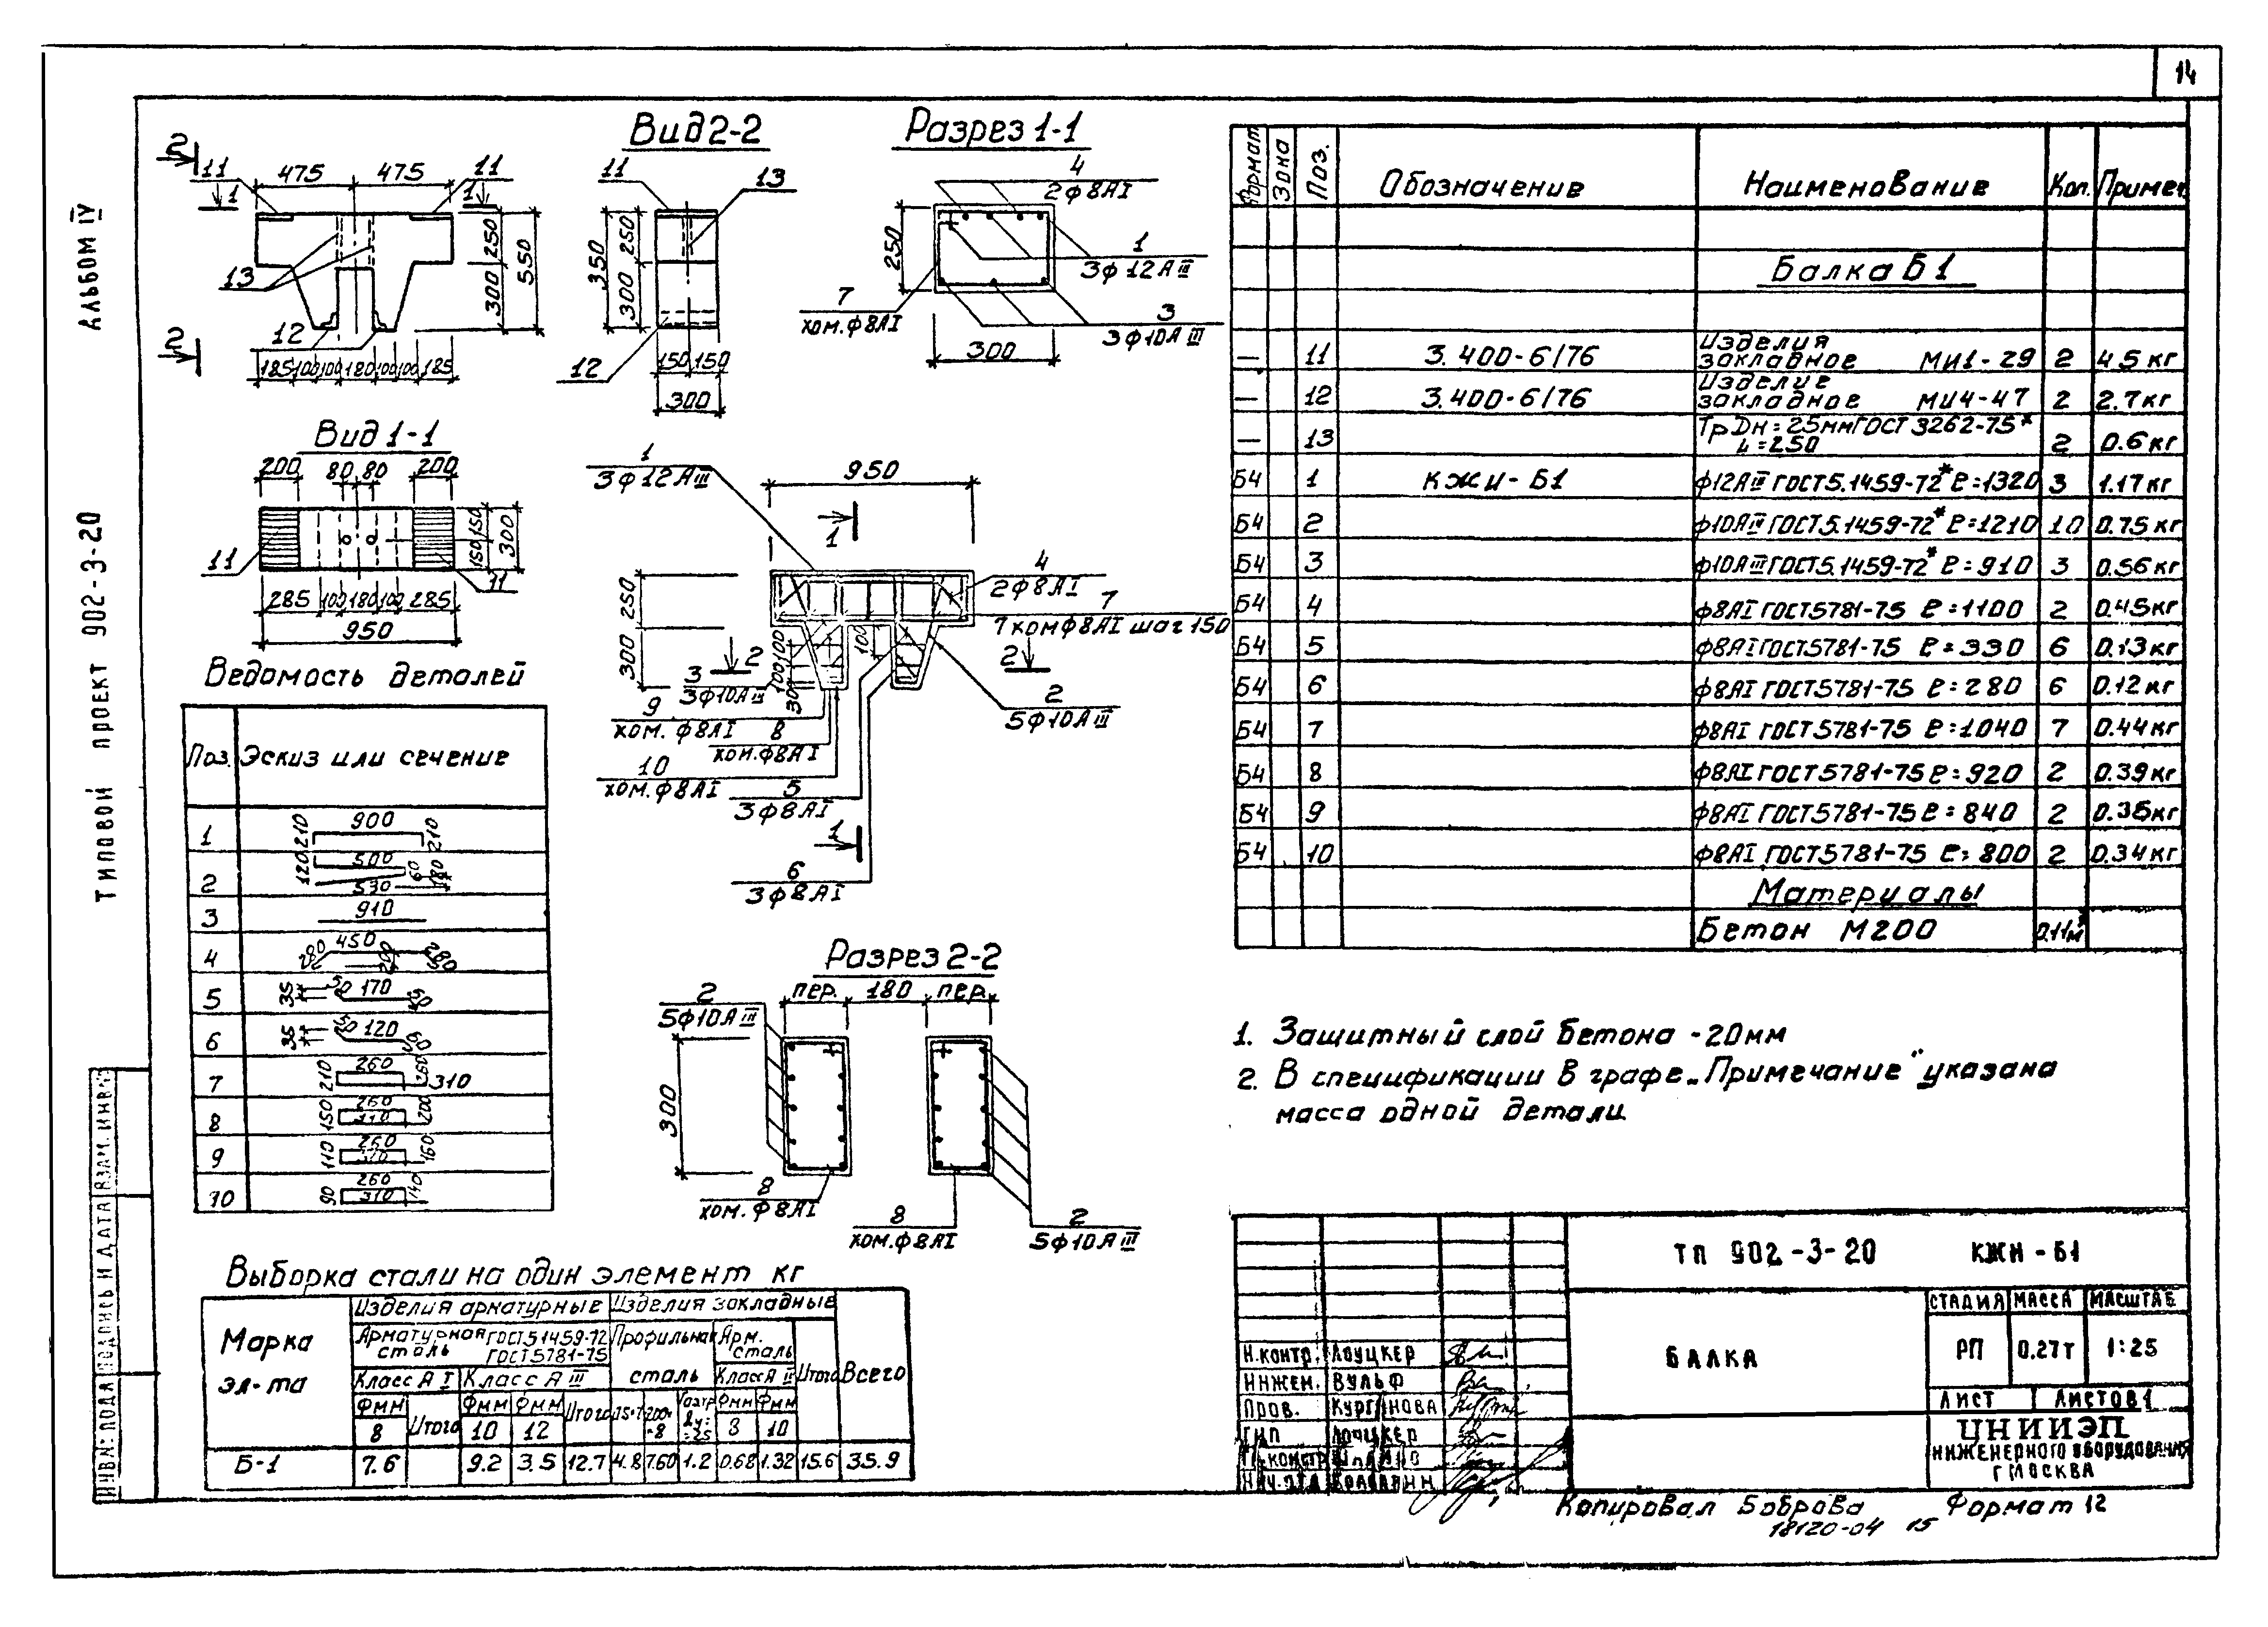 14
АЛЬБОМ IV
ТИПОВОЙ ПРОЕКТ 902-3-20
2
11 475 475 11
1 1
250
300
550
13
12
2
185 100 100 180 100 100 185
Вид 2-2
11
13
350
250
300
12
150 150
300
Разрез 1-1
4
2ф8АI
250
1
3ф12АIII
7
хом. ф8АI
3
3ф10АIII
300
Вид 1-1
200 80 80 200
11
11
150 150
300
285 100 180 100 285
950
1
3ф12АIII
950
1
4
2ф8АI
7
7 хом ф8АI шаг 150
250
300
100
100 100
30
2 2
3
3ф10АIII
2
5ф10АIII
9
хом. ф8АI
8
хом. ф8АI
10
хом. ф8АI
5
3ф8АI
1
6
3ф8АI
Ведомость деталей
Поз. Эскиз или сечение
1 210 900 210
2 120 500 60 180 530
3 910
4 280 450 200 280
5 35 50 170 50
6 35 50 120 60
7 210 260 260 310
8 150 260 310 200
9 110 260 310 160
10 90 260 310 140
Разрез 2-2
пер. 180 пер.
2
5ф10АIII
300
8
хом. ф8АI
8
хом. ф8АI
2
5ф10АIII
Формат Зона Поз. Обозначение Наименование Кол. Примеч.
Балка Б1
— 11 3.400-6/76 Изделия закладное МИ1-29 2 4.5 кг
— 12 3.400-6/76 Изделие закладное МИ4-47 2 2.7 кг
— 13 Тр Dн=25мм ГОСТ 3262-75* L=250 2 0.6 кг
Б4 1 КЖИ-Б1 ф12АIII ГОСТ 5.1459-72* ℓ=1320 3 1.17 кг
Б4 2 ф10АIII ГОСТ 5.1459-72* ℓ=1210 10 0.75 кг
Б4 3 ф10АIII ГОСТ 5.1459-72* ℓ=910 3 0.56 кг
Б4 4 ф8АI ГОСТ 5781-75 ℓ=1100 2 0.45 кг
Б4 5 ф8АI ГОСТ 5781-75 ℓ=330 6 0.13 кг
Б4 6 ф8АI ГОСТ 5781-75 ℓ=280 6 0.12 кг
Б4 7 ф8АI ГОСТ 5781-75 ℓ=1040 7 0.44 кг
Б4 8 ф8АI ГОСТ 5781-75 ℓ=920 2 0.39 кг
Б4 9 ф8АI ГОСТ 5781-75 ℓ=840 2 0.35 кг
Б4 10 ф8АI ГОСТ 5781-75 ℓ=800 2 0.34 кг
Материалы
Бетон М200 0.11м³
1. Защитный слой бетона -20мм
2. В спецификации в графе „Примечание" указана
масса одной детали
Выборка стали на один элемент кг
Марка эл-та
Изделия арматурные Изделия закладные
Арматурная сталь ГОСТ 5.1459-72 ГОСТ 5781-75 Профильная сталь Арм. сталь Итого Всего
Класс А I Класс А III Класс А II
Фмм Итого Фмм Фмм Итого Фмм Фмм
8 10 12 8 10
Б-1 7.6 9.2 3.5 12.7 4.8 7.60 1.2 0.68 1.32 15.6 35.9
ТП 902-3-20 КЖИ-Б1
СТАДИЯ МАССА МАСШТАБ
БАЛКА
РП 0.27т 1:25
ЛИСТ ЛИСТОВ 1
ЦНИИЭП
ИНЖЕНЕРНОГО ОБОРУДОВАНИЯ
Г МОСКВА
Н.КОНТР. ЛОУЦКЕР
ИНЖЕН. ВУЛЬФ
ПРОВ. КУРГАНОВА
ГИП ЛОУЦКЕР
ГЛ.КОНСТР
НАЧ.ОТД
ИНВ№ ПОДЛ ПОДПИСЬ И ДАТА ВЗАМ. ИНВ№
Копировал Боброва Формат 12
18120-04 15